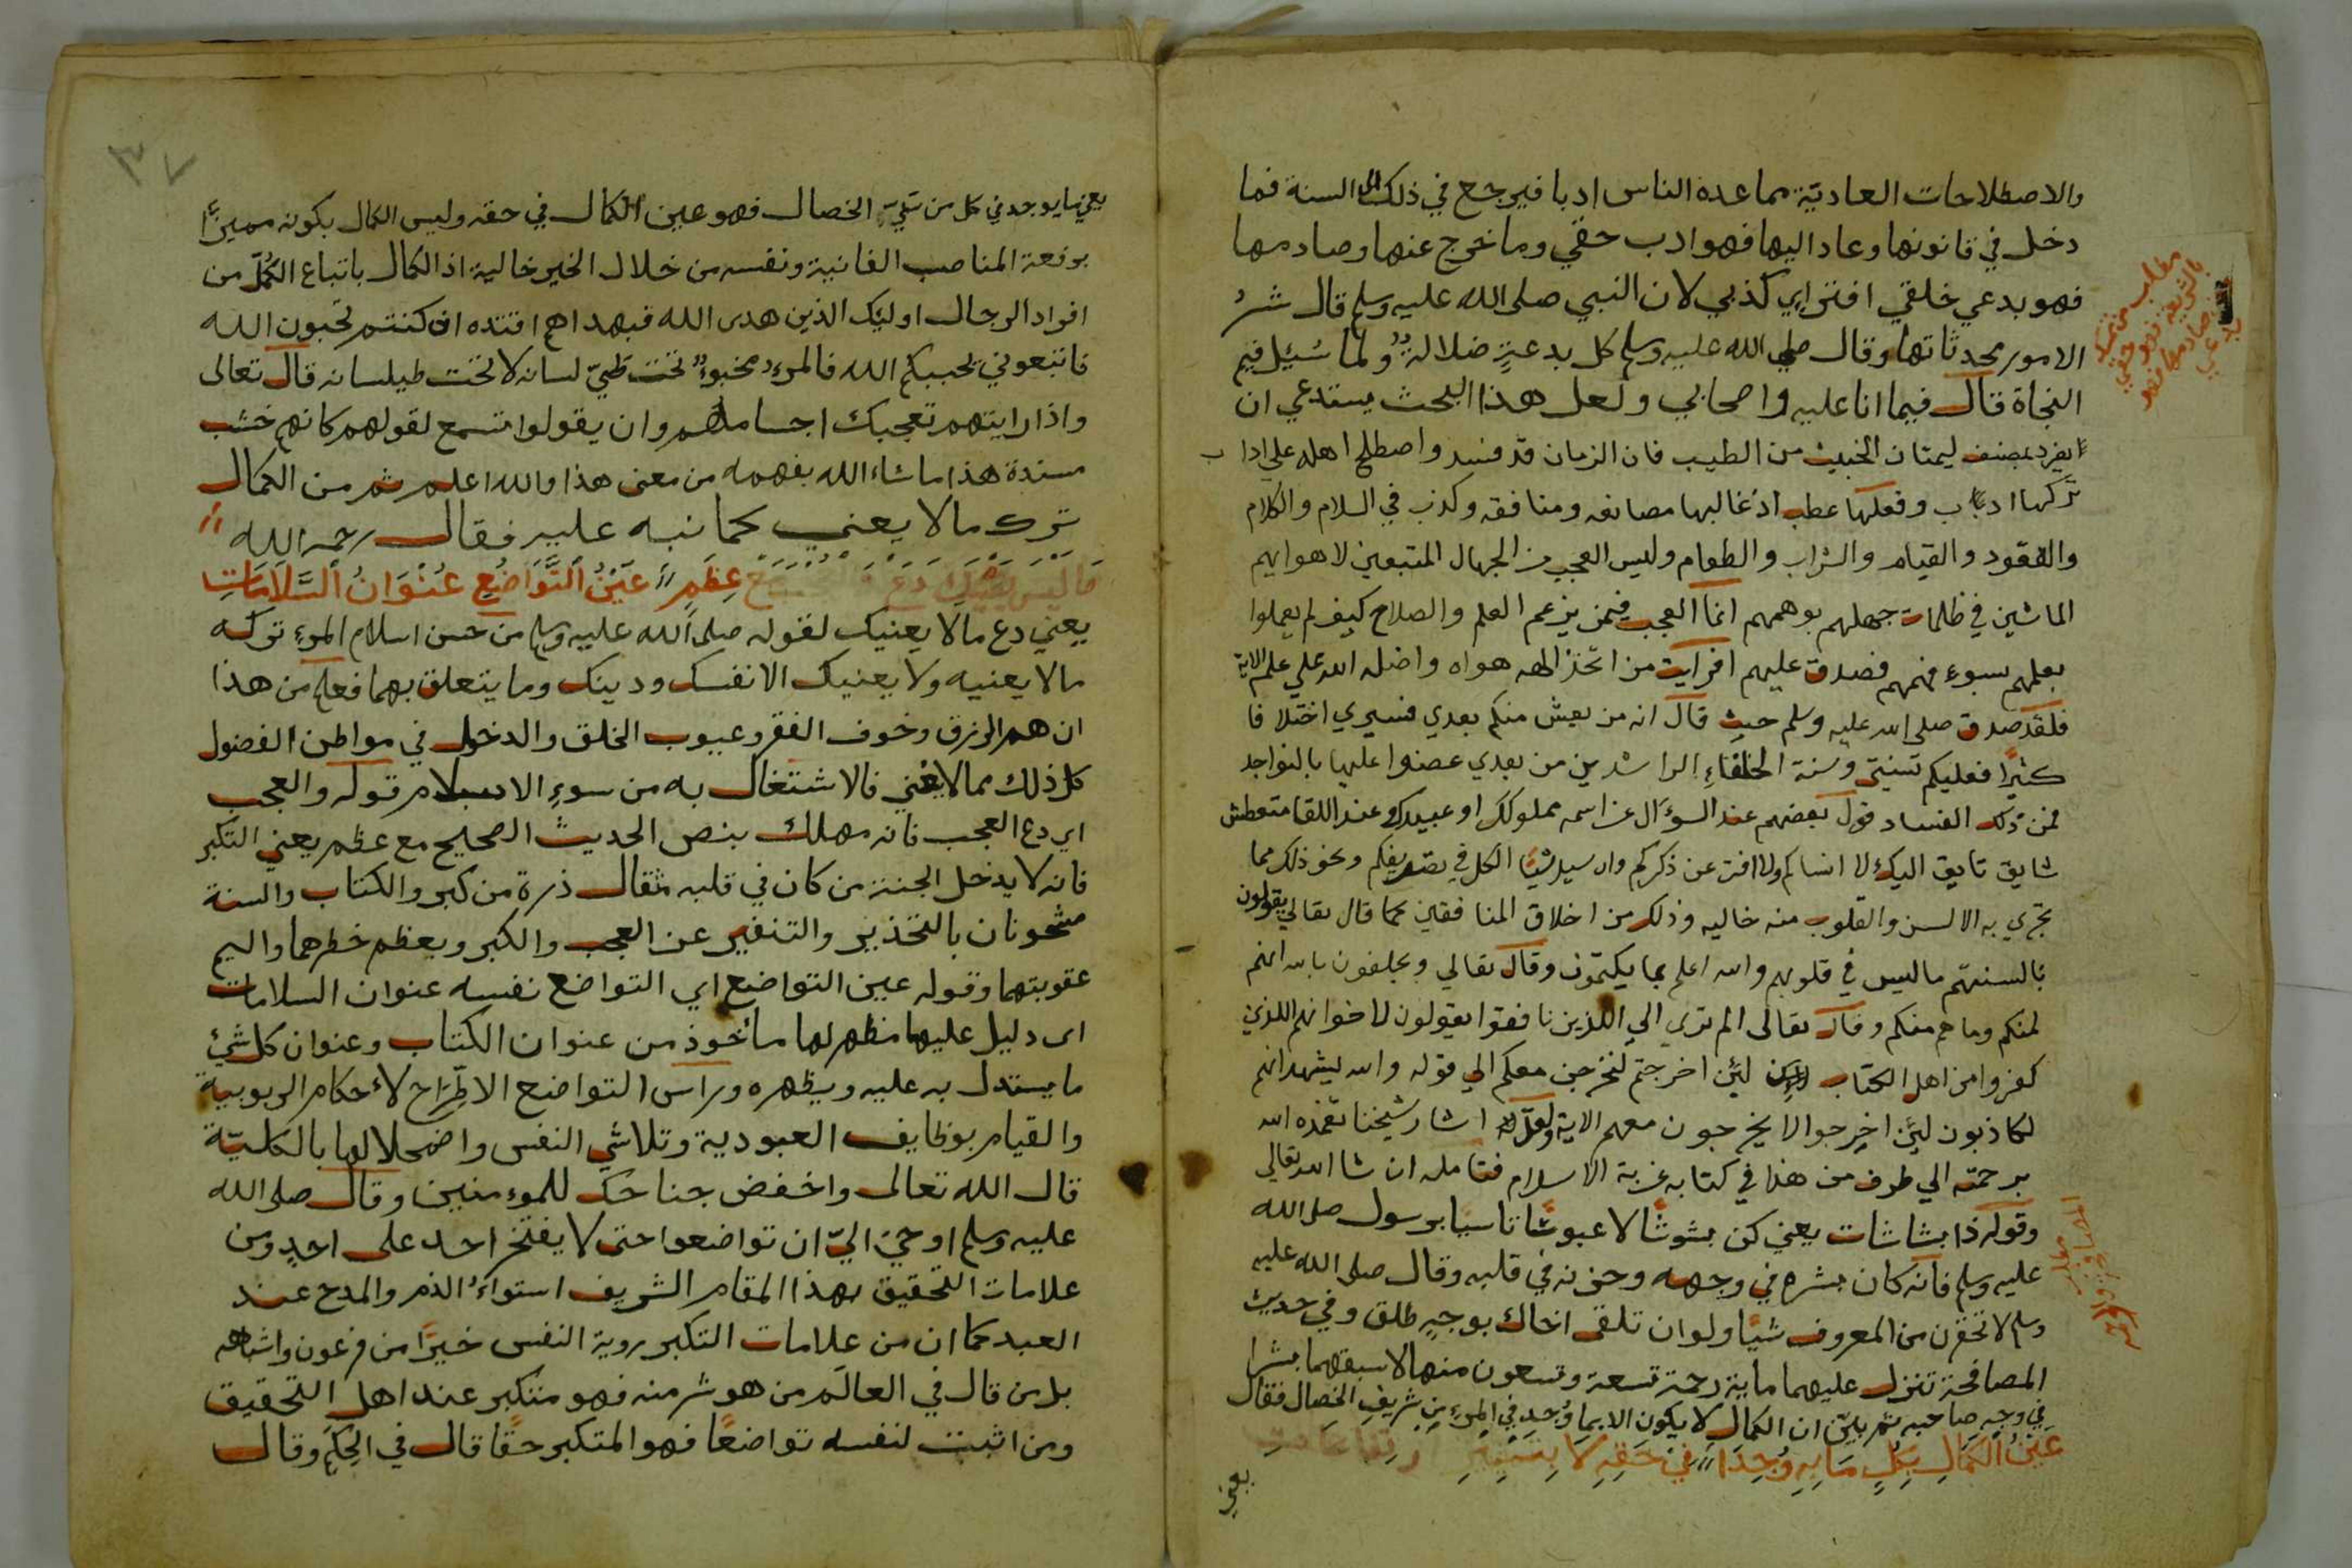 والاصطلاحات العادية مما عده الناس ادبا فيرجع في ذلك الى السنة فما
دخل في قانونها وعاد اليها فهو ادب حقي وما خرج عنها وصادمها
فهو بدعي خلقي افتراي كذبي لان النبي صلى الله عليه وسلم قال شر
الامور محدثاتها وقال صلى الله عليه وسلم كل بدعةٍ ضلالة ولما سُئِل فيم
النجاة قال فيما انا عليه واصحابي ولعل هذا البحث يستدعي ان
يفرد بمصنف ليمتان الخبيث من الطيب فان الزمان قد فسد واصطلح اهله على اداب
تركها اداب وفعلها عطب اذ غالبها مصانعه ومنافقه وكذب في السلام والكلام
والقعود والقيام والشراب والطعام وليس العجب من الجهال المتبعين لاهوايهم
الماشين في ظلمات جهلهم بوهمهم انما العجب فيمن يزعم العلم والصلاح كيف لم يعملوا
بعلمهم بسوء فهمهم فصدق عليهم افرايت من اتخذ الهه هواه واضله الله على علم الاية
فلقد صدق صلى الله عليه وسلم حيث قال انه من يعش منكم بعدي فسيري اختلافا
كثيرًا فعليكم بسنتي وسنة الخلفاءِ الراشدين من بعدي عضوا عليها بالنواجد
فمن ذلك الفساد قول بعضهم عند السؤال عن اسمه مملوكك او عبيدك وعند اللقا متعطش
شايق تايق اليك لا انساكم ولا افتر عن ذكركم وان سيل شيًا الكل في تصريفكم ونحو ذلك مما
تجري به الالسن والقلوب منه خاليه وذلك من اخلاق المنافقين كما قال تعالي يقولون
بالسنتهم ما ليس في قلوبهم والله اعلم بما يكتمون وقال تعالي ويحلفون بالله انهم
لمنكم وما هم منكم وقال تعالى الم تري الي الذين نافقوا يقولون لاخوانهم اللذين
كفروا من اهل الكتاب لئِن اخرجتم لنخرجن معكم الي قوله والله يشهد انهم
لكاذبون لئِن اخرجوا لا يخرجون معهم الاية ولعله اشار شيخنا تغمده الله
برحمته الي طرف من هذا في كتابه غربة الاسلام فتامله ان شا الله تعالي
وقوله ذا بشاشات يعني كن بشوشًا لا عبوسًا تاسيًا برسول صلى الله
عليه وسلم فانه كان بشره في وجهه وحزنه في قلبه وقال صلى الله عليه
وسلم لا تحقرن من المعروف شيًا ولو ان تلقى اخاك بوجهٍ طلق وفي حديث
المصافحة تنزل عليهما ماية رحمة تسعة وتسعون منها لاسبقهما بشرا
في وجه صاحبه ثم بيّن ان الكمال لا يكون الا بما وُجد في المرء من شريف الخصال فقال
عَيْنُ الكَمَالِ بِكُلٍ مَا بِهِ وُجِدَا فِي حَقِهِ لَا
يعني
مطلب
٣٧
يعني ما يوجد في كل من تلك الخصال فهو عين الكمال في حقه وليس الكمال بكونه مميزًا
برفعة المناصب الفانية ونفسه من خلال الخير خالية اذ الكمال باتباع الكُمَّل من
افراد الرجال اوليك الذين هدى الله فبهداهم اقتده ان كنتم تحبون الله
فاتبعوني يحببكم الله فالمرء مخبوءٌ تحت طيّ لسانه لا تحت طيلسانه قال تعالى
واذا رايتهم تعجبك اجسامهم وان يقولوا تسمع لقولهم كانهم خشب
مسندة هذا ما شاء الله بفهمه من معنى هذا والله اعلم ثم من الكمال
ترك ما لا يعني كما نبه عليه فقال رحمه الله
مَا لَيْسَ يَعْنِيكَ دَعْ عِظَمٍ عَيْنُ التَّوَاضُعِ عُنْوَانُ السَّلَامَاتِ
يعني دع ما لا يعنيك لقوله صلى الله عليه وسلم من حسن اسلام المرءِ تركه
ما لا يعنيه ولا يعنيك الا نفسك ودينك وما يتعلق بهما فعلم من هذا
ان هم الرزق وخوف الفقر وعيوب الخلق والدخول في مواطن الفضول
كل ذلك مما لا يغني فالاشتغال به من سوءِ الاسلام قوله والعجب
اي دع العجب فانه مهلك بنص الحديث الصحيح مع عظم يعني التكبر
فانه لا يدخل الجنة من كان في قلبه مثقال ذرة من كبر والكتاب والسنة
مشحونان بالتحذير والتنفير عن العجب والكبر ويعظم خطرهما واليم
عقوبتهما وقوله عين التواضع اي التواضع نفسه عنوان السلامات
اى دليل عليها مظهر لها مأخوذ من عنوان الكتاب وعنوان كل شيئ
ما يستدل به عليه ويظهره وراس التواضع الاطِّرَاح لأحكام الربوبية
والقيام بوظايف العبودية وتلاشي النفس واضمحلالها بالكليّة
قال الله تعالى واخفض جناحك للموءمنين وقال صلى الله
عليه وسلم اوحيَ اليّ ان تواضعوا حتى لا يفتخر احد على احدٍ ومن
علامات التحقيق بهذا المقام الشريف استواءُ الذم والمدح عند
العبد كما ان من علامات التكبر روية النفس خيرًا من فرعون واشباهه
بل من قال في العالَم من هو شر منه فهو متكبر عند اهل التحقيق
ومن اثبت لنفسه تواضعًا فهو المتكبر حقًا قال في الحِكَم وقال